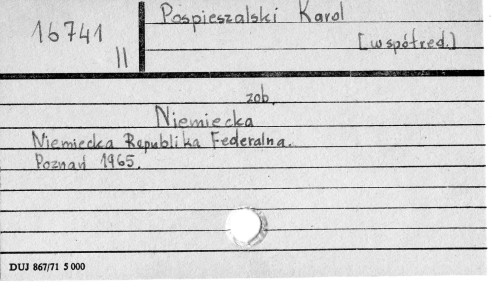 16741
II
Pospieszalski Karol
[współred.]
zob.
Niemiecka
Niemiecka Republika Federalna.
Poznań 1965.
DUJ 867/71 5 000